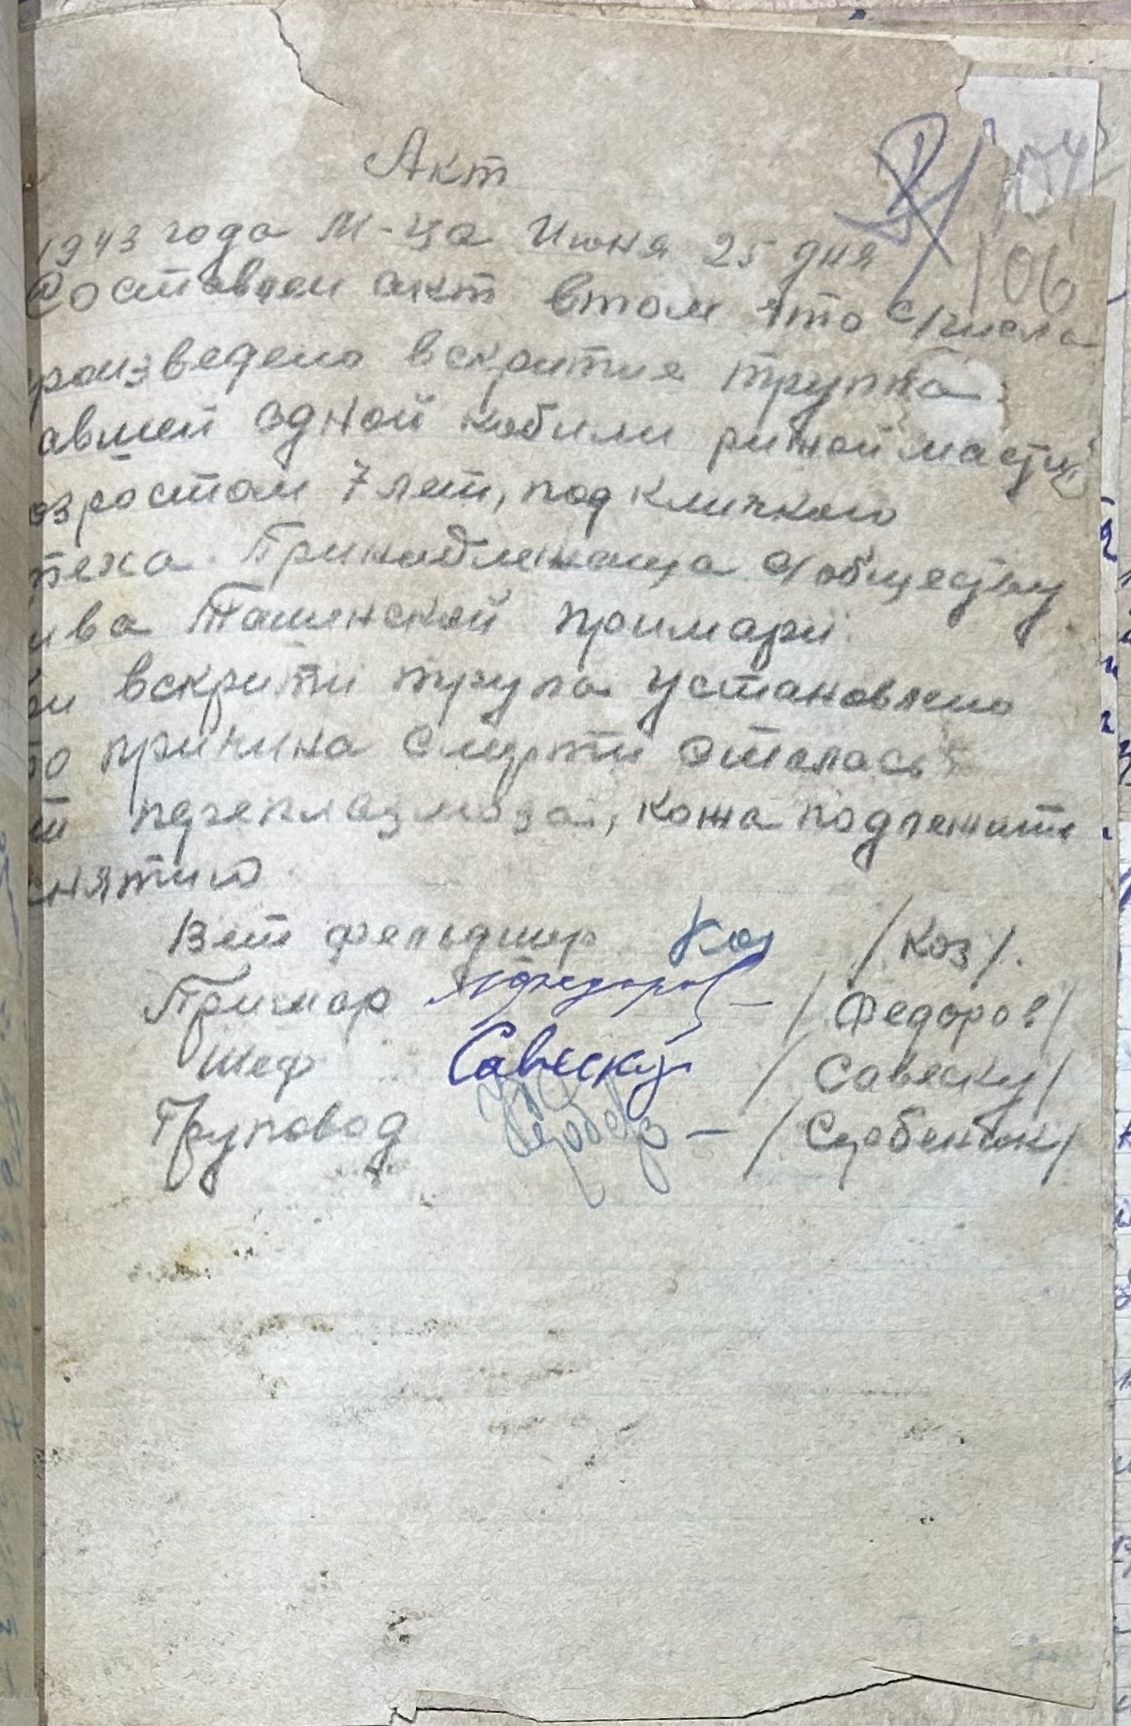 Акт
104
1943 года М-ца Июня 25 дня
106
Составлен акт втом что с/числа
роизведено вскритие трупа
авшей одной кобили рижой масти
озростом 7 лет, под кличкою
теха. Принадлежаща с/обществу
ива Ташинской примарii.
ри вскритi трупа установлено
то причина смерти сталась
от пероплазмоза, кожа подлежит
снятию
Вет фельдшер Коз /Коз/.
Примар Федоров – /Федоров/
Шеф Савеску /Савеску/
Груповод – /Сербенюк/